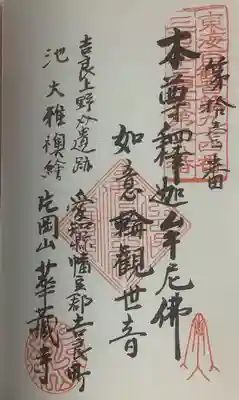 第拾壱番
本尊釋迦牟尼佛
如意輪觀世音
愛知縣幡豆郡吉良町
吉良上野介遺跡
池大雅襖繪
片岡山華藏寺